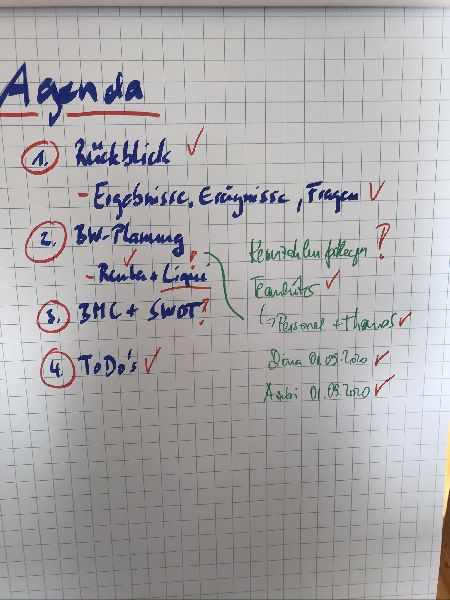 Agenda
1. Rückblick ✓
- Ergebnisse, Ereignisse, Fragen ✓
2. BW-Planung
- Renta + Liqui
3. BMC + SWOT?
4. ToDo's ✓
Kennzahlen ?
✓
↳ Personal + Thomas ✓
01.09.2020 ✓
01.09.2020 ✓